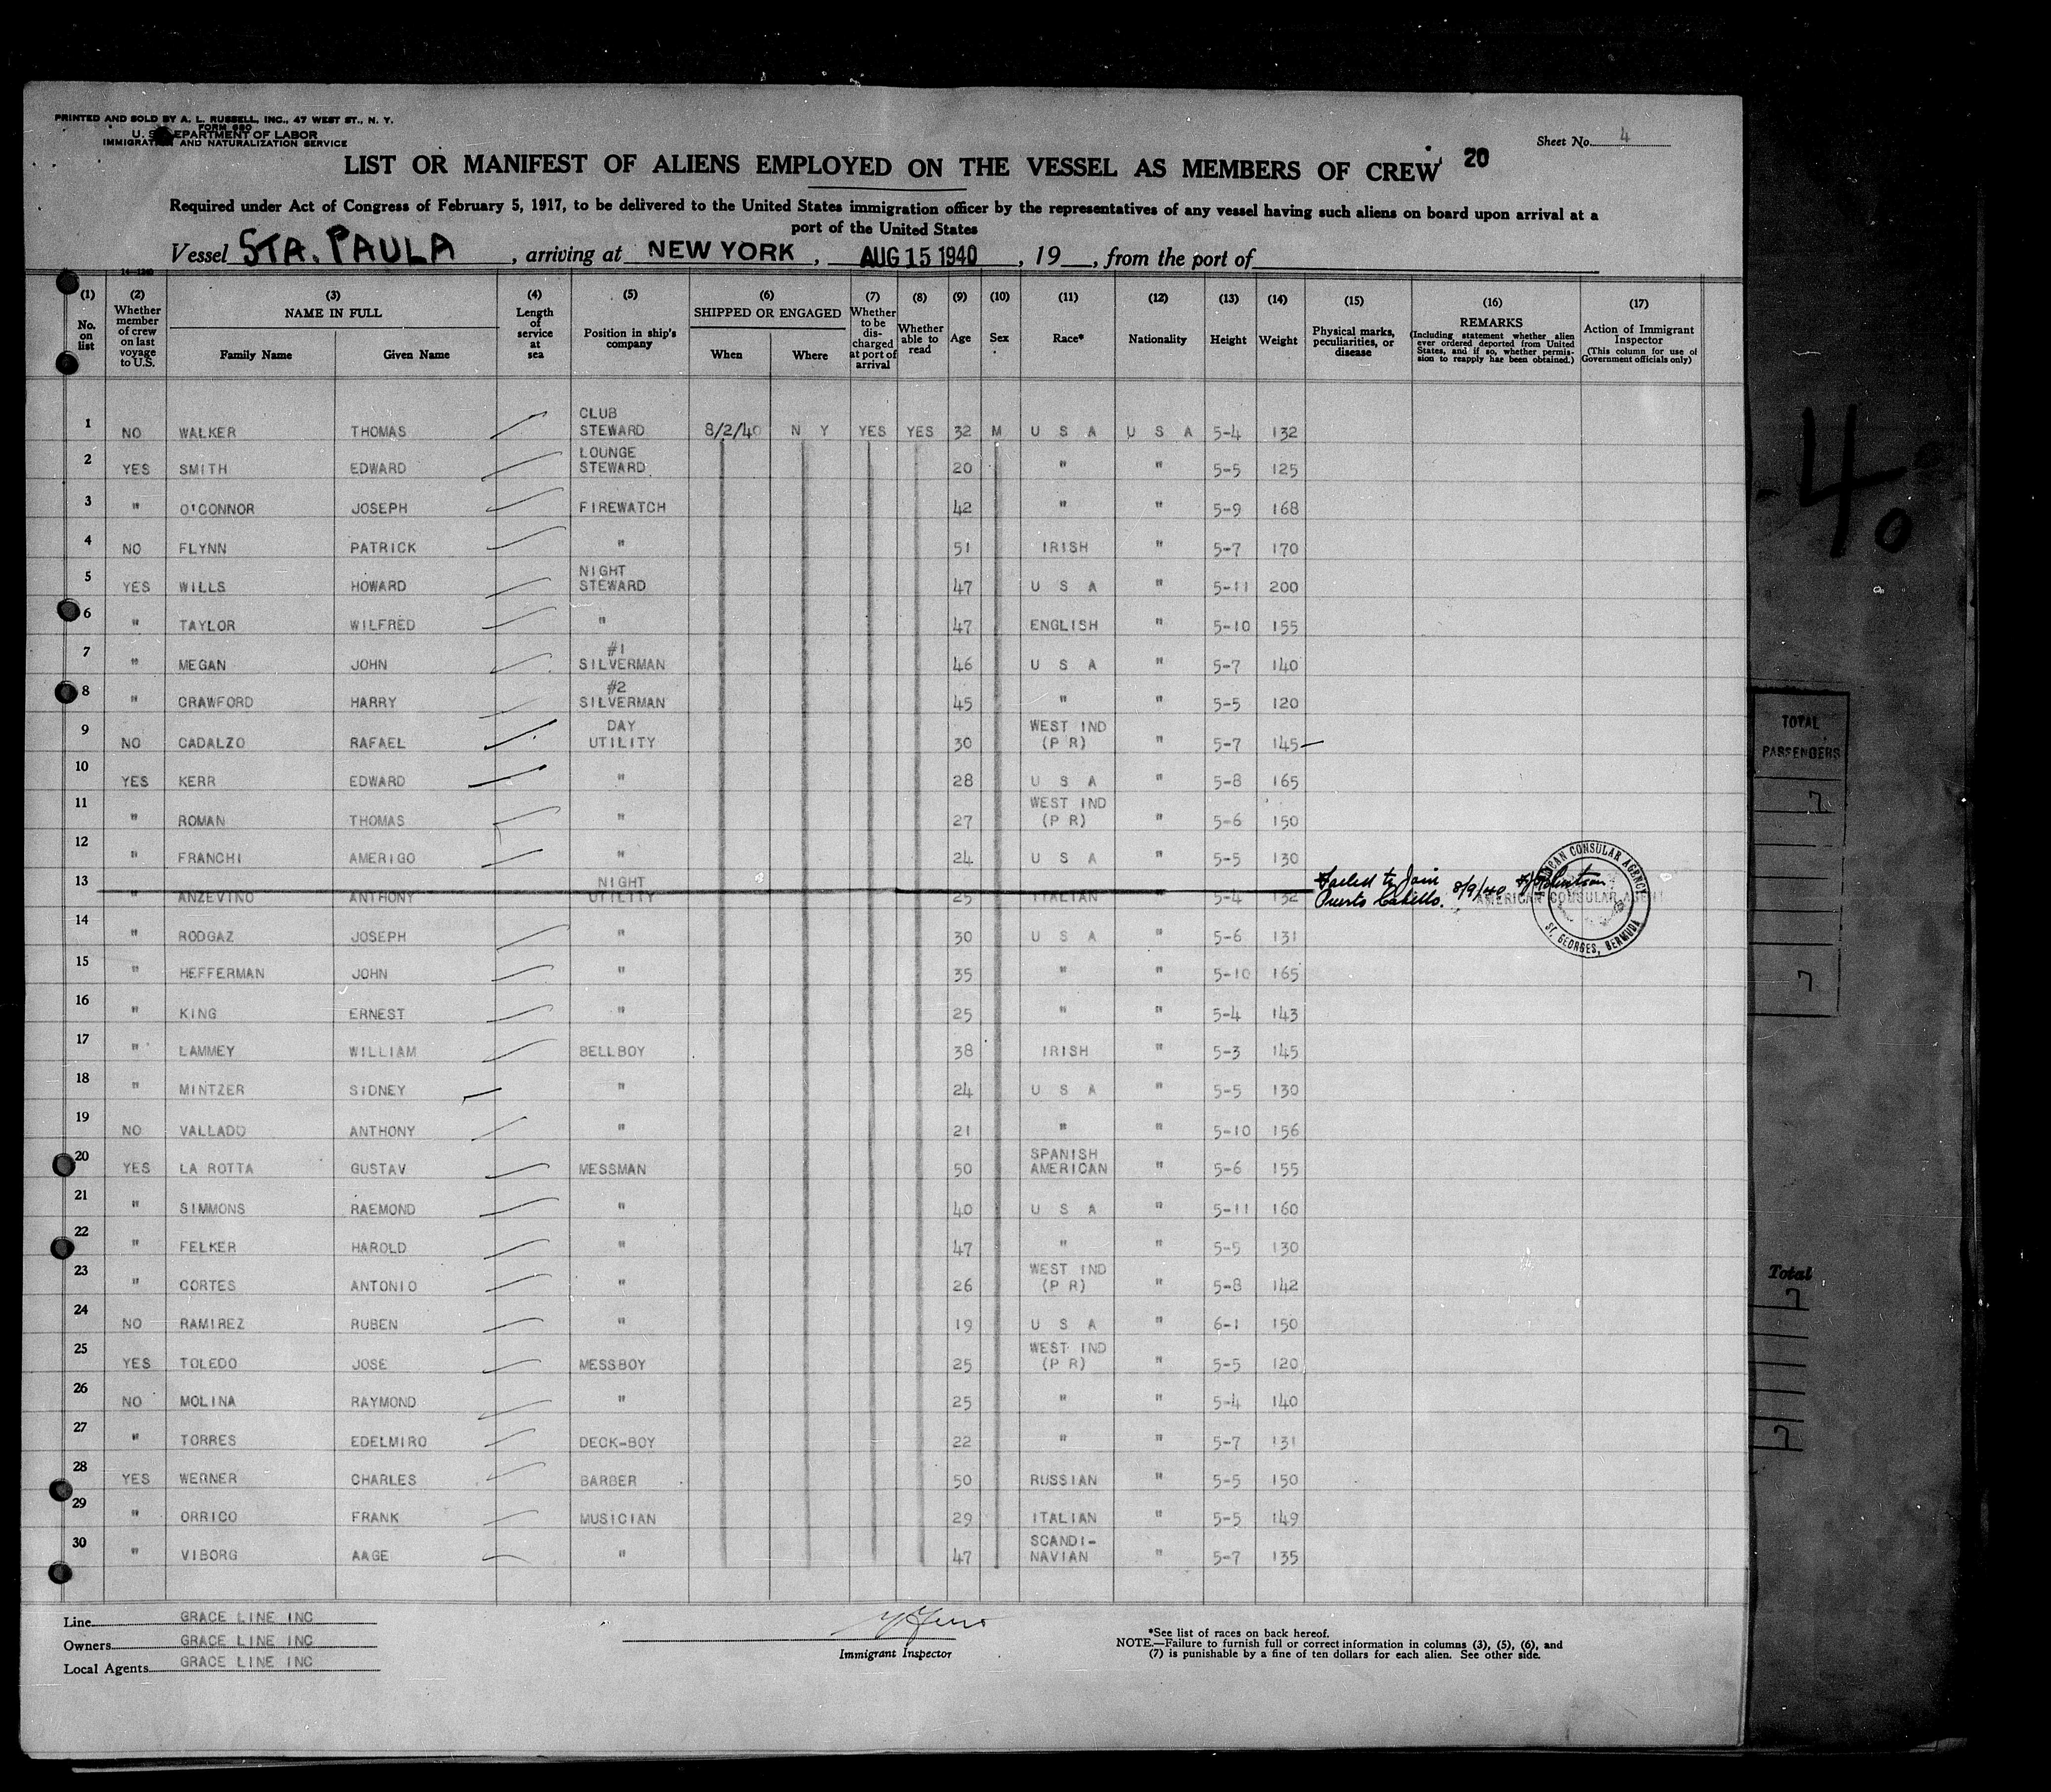 PRINTED AND SOLD BY A. L. RUSSELL, INC., 47 WEST ST., N. Y.
FORM 680
U. S. DEPARTMENT OF LABOR
IMMIGRATION AND NATURALIZATION SERVICE
Sheet No. 4
LIST OR MANIFEST OF ALIENS EMPLOYED ON THE VESSEL AS MEMBERS OF CREW 20
Required under Act of Congress of February 5, 1917, to be delivered to the United States immigration officer by the representatives of any vessel having such aliens on board upon arrival at a
port of the United States
Vessel STA. PAULA, arriving at NEW YORK, AUG 15 1940, 19__, from the port of
14-1240
(1) No. on list
(2) Whether member of crew on last voyage to U.S.
(3) NAME IN FULL Family Name Given Name
(4) Length of service at sea
(5) Position in ship's company
(6) SHIPPED OR ENGAGED When Where
(7) Whether to be discharged at port of arrival
(8) Whether able to read
(9) Age
(10) Sex
(11) Race*
(12) Nationality
(13) Height
(14) Weight
(15) Physical marks, peculiarities, or disease
(16) REMARKS (Including statement whether alien ever ordered deported from United States, and if so, whether permission to reapply has been obtained.)
(17) Action of Immigrant Inspector (This column for use of Government officials only)
1 NO WALKER THOMAS CLUB STEWARD 8/2/40 N Y YES YES 32 M U S A U S A 5-4 132
2 YES SMITH EDWARD LOUNGE STEWARD 20 " " 5-5 125
3 " O'CONNOR JOSEPH FIREWATCH 42 " " 5-9 168
4 NO FLYNN PATRICK " 51 IRISH " 5-7 170
5 YES WILLS HOWARD NIGHT STEWARD 47 U S A " 5-11 200
6 " TAYLOR WILFRED " 47 ENGLISH " 5-10 155
7 " MEGAN JOHN #1 SILVERMAN 46 U S A " 5-7 140
8 " CRAWFORD HARRY #2 SILVERMAN 45 " " 5-5 120
9 NO CADALZO RAFAEL DAY UTILITY 30 WEST IND (P R) " 5-7 145
10 YES KERR EDWARD " 28 U S A " 5-8 165
11 " ROMAN THOMAS " 27 WEST IND (P R) " 5-6 150
12 " FRANCHI AMERIGO " 24 U S A " 5-5 130
13 " ANZEVINO ANTHONY NIGHT UTILITY 25 ITALIAN " 5-4 132 Failed to Join Puerto Cabello. 8/9/40
AMERICAN CONSULAR AGENT
AMERICAN CONSULAR AGENCY ST. GEORGES, BERMUDA
14 " RODGAZ JOSEPH " 30 U S A " 5-6 131
15 " HEFFERMAN JOHN " 35 " " 5-10 165
16 " KING ERNEST " 25 " " 5-4 143
17 " LAMMEY WILLIAM BELLBOY 38 IRISH " 5-3 145
18 " MINTZER SIDNEY " 24 U S A " 5-5 130
19 NO VALLADO ANTHONY " 21 " " 5-10 156
20 YES LA ROTTA GUSTAV MESSMAN 50 SPANISH AMERICAN " 5-6 155
21 " SIMMONS RAEMOND " 40 U S A " 5-11 160
22 " FELKER HAROLD " 47 " " 5-5 130
23 " CORTES ANTONIO " 26 WEST IND (P R) " 5-8 142
24 NO RAMIREZ RUBEN " 19 U S A " 6-1 150
25 YES TOLEDO JOSE MESSBOY 25 WEST IND (P R) " 5-5 120
26 NO MOLINA RAYMOND " 25 " " 5-4 140
27 " TORRES EDELMIRO DECK-BOY 22 " " 5-7 131
28 YES WERNER CHARLES BARBER 50 RUSSIAN " 5-5 150
29 " ORRICO FRANK MUSICIAN 29 ITALIAN " 5-5 149
30 " VIBORG AAGE " 47 SCANDI-NAVIAN " 5-7 135
Line GRACE LINE INC
Owners GRACE LINE INC
Local Agents GRACE LINE INC
Immigrant Inspector
*See list of races on back hereof.
NOTE.—Failure to furnish full or correct information in columns (3), (5), (6), and
(7) is punishable by a fine of ten dollars for each alien. See other side.
40
TOTAL
PASSENGERS
7
7
Total
7
7